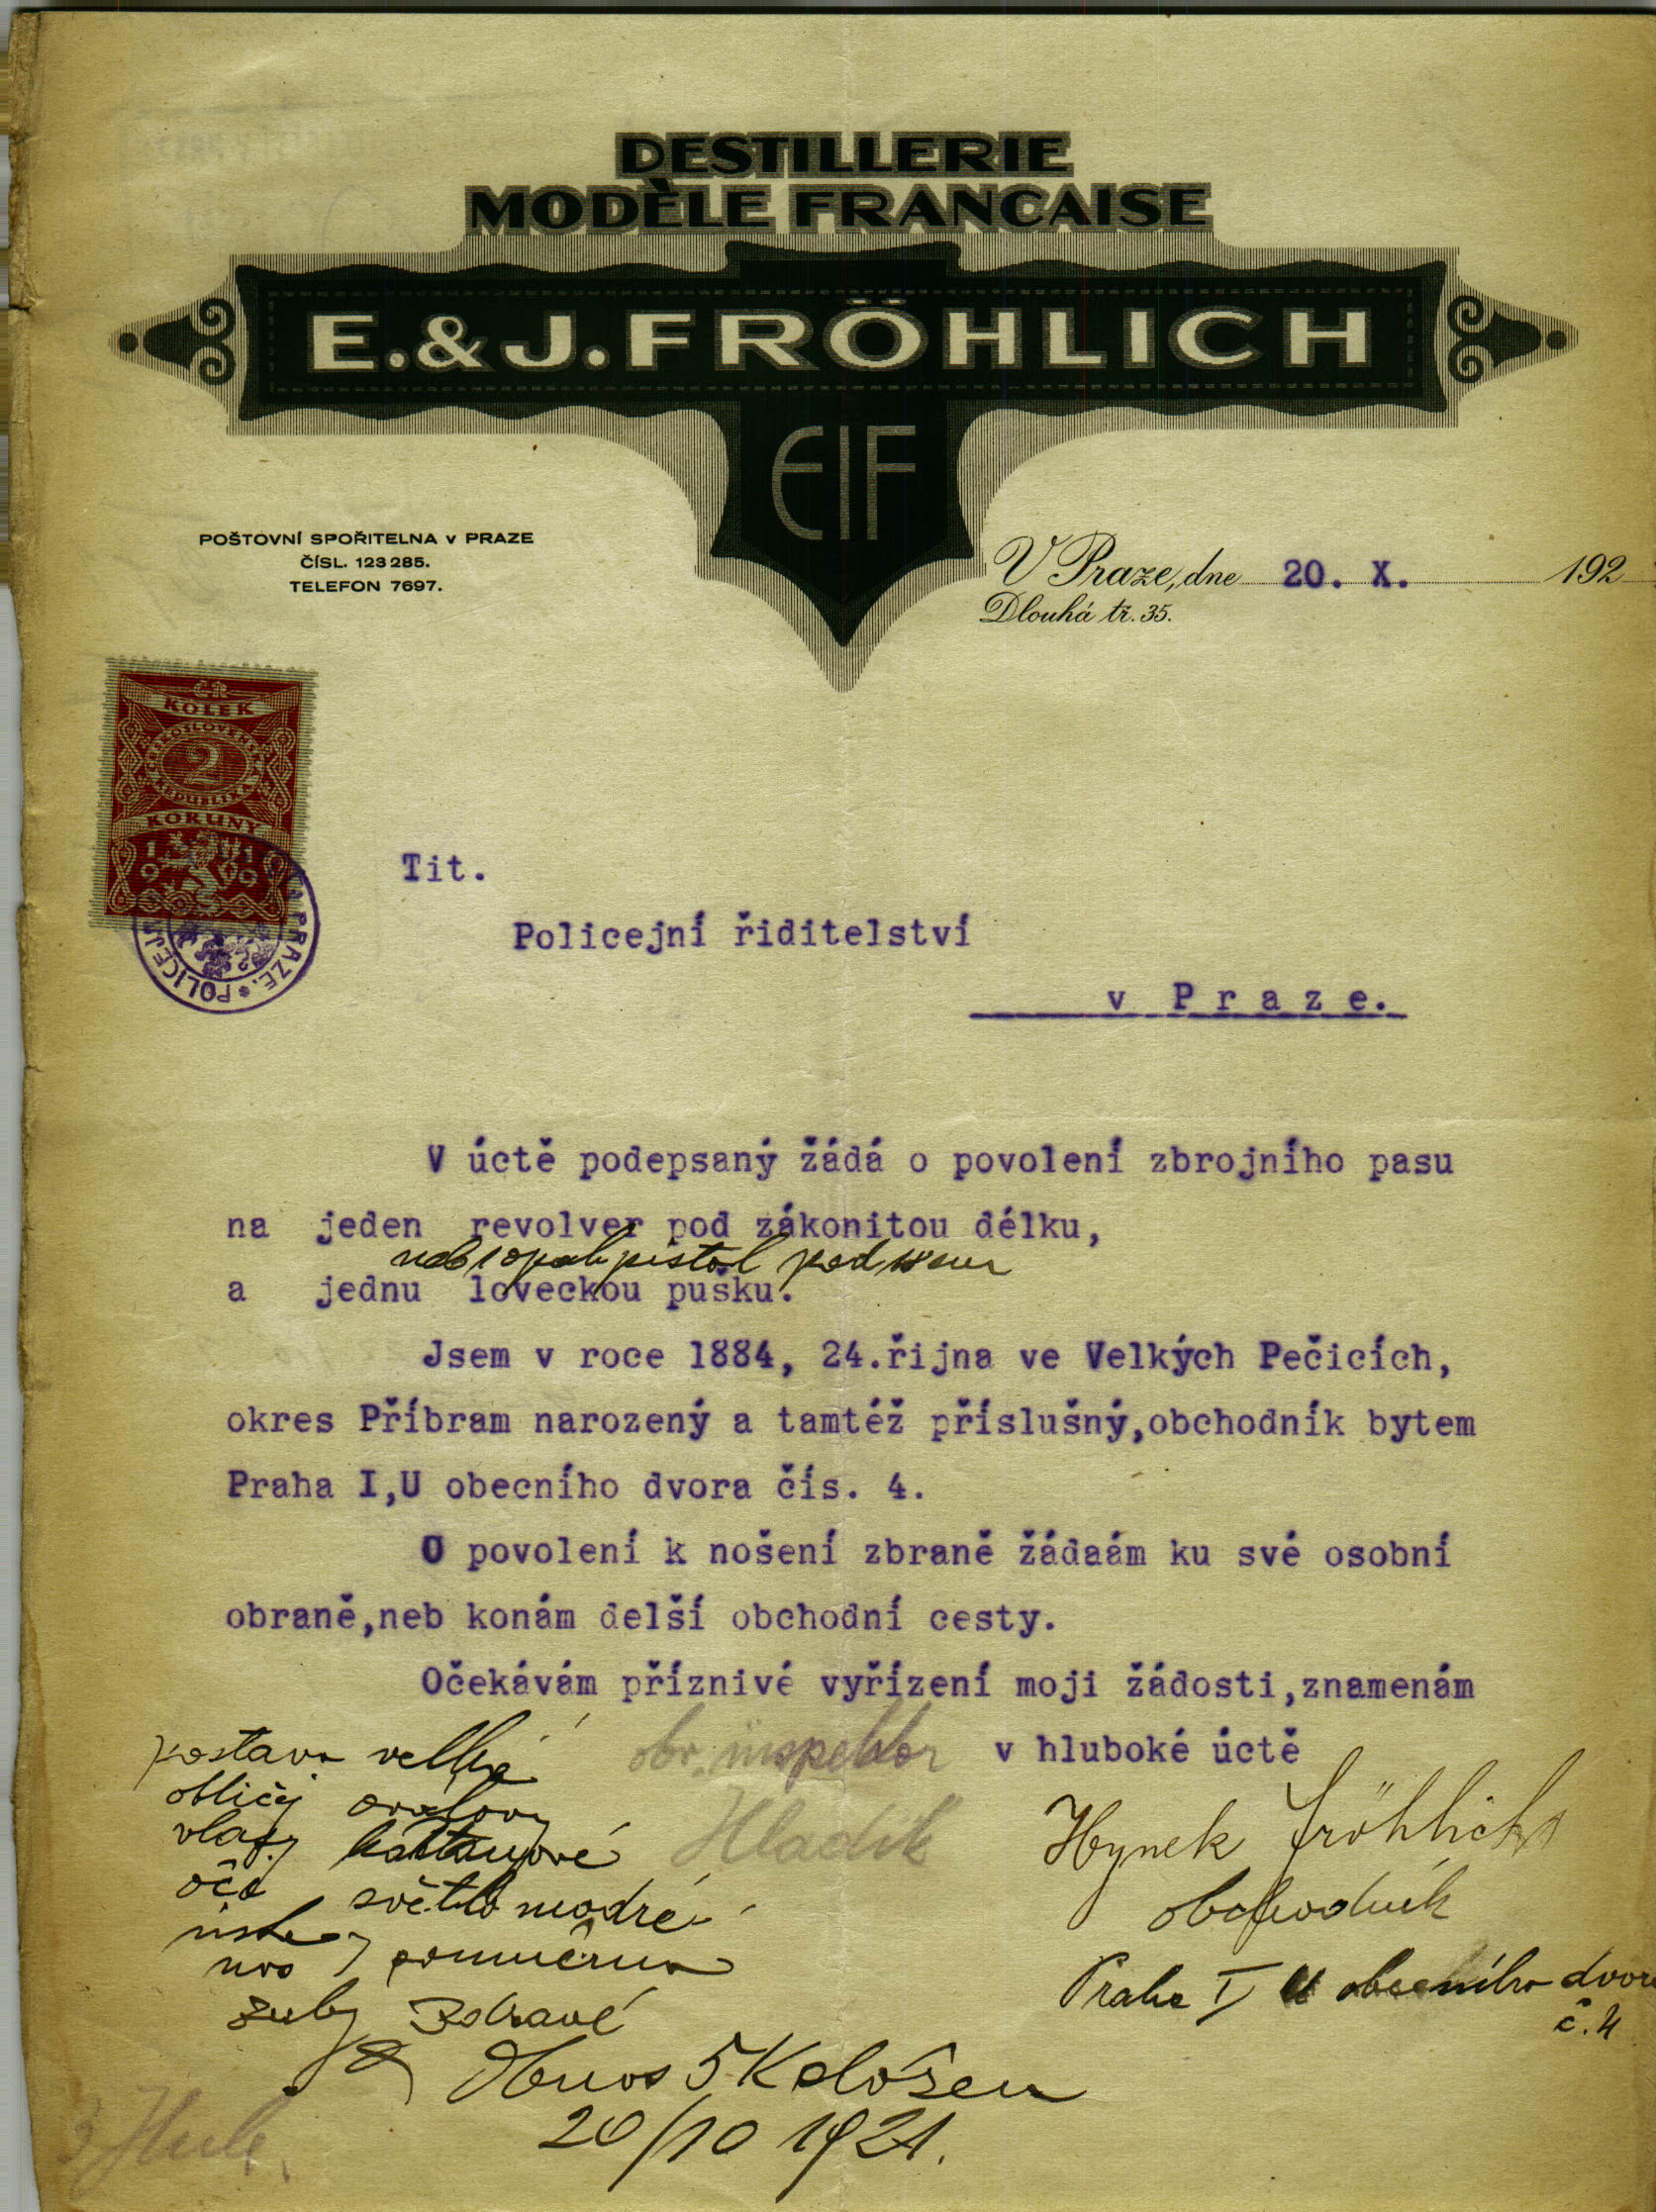 DESTILLERIE
MODÈLE FRANCAISE
E. & J. FRÖHLICH
EJF
POŠTOVNÍ SPOŘITELNA v PRAZE
ČÍSL. 123285.
TELEFON 7697.
V Praze, dne 20. X. 192
Dlouhá tř. 35.
ČR
KOLEK
ČESKOSLOVENSKÁ
2
REPUBLIKA
KORUNY
1919
POLICEJN
PRAZE.
Tit.
Policejní řiditelství
v Praze.
V úctě podepsaný žádá o povolení zbrojního pasu
na jeden revolver pod zákonitou délku,
neb 1 opak pistol pod 18 cm
a jednu loveckou pušku.
Jsem v roce 1884, 24.řijna ve Velkých Pečicích,
okres Příbram narozený a tamtéž příslušný,obchodník bytem
Praha I,U obecního dvora čís. 4.
O povolení k nošení zbraně žádaám ku své osobní
obraně,neb konám delší obchodní cesty.
Očekávám příznivé vyřízení moji žádosti,znamenám
v hluboké úctě
postava velká
obličej ovalový
vlasy kaštanové
oči světlo modré
ústa
nos } poměrná
zuby zdravé
obv. inspektor
Hladík
Hynek Fröhlich
obchodník
Praha I, U obecního dvora
č. 4
Obnos 5 K složen
20/10 1921.